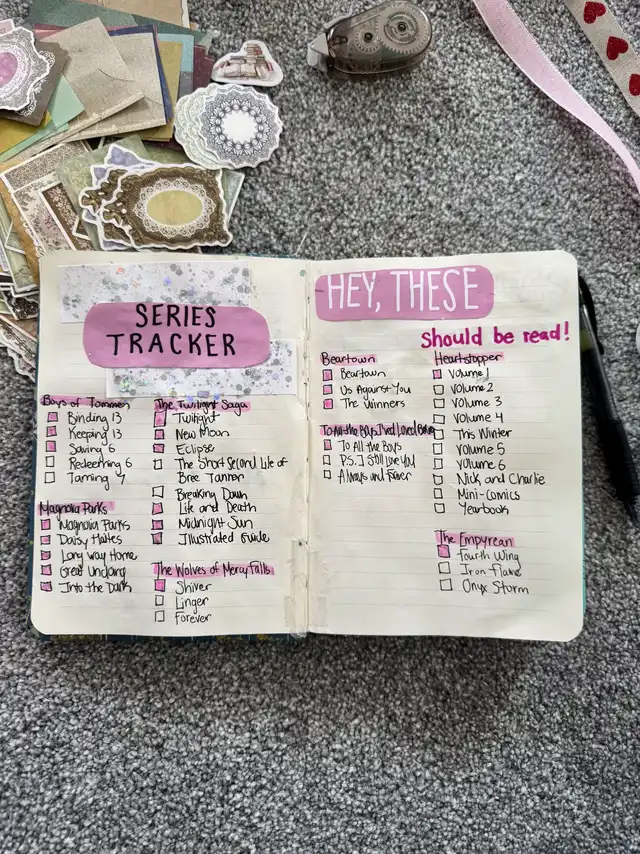 SERIES
TRACKER
Boys of Tommen
Binding 13
Keeping 13
Saving 6
Redeeming 6
Taming 7
Magnolia Parks
Magnolia Parks
Daisy Haites
Long Way Home
Great Undoing
Into the Dark
The Twilight Saga
Twilight
New Moon
Eclipse
The Short Second Life of
Bree Tanner
Breaking Dawn
Life and Death
Midnight Sun
Illustrated Guide
The Wolves of Mercy Falls
Shiver
Linger
Forever
HEY, THESE
Should be read!
Beartown
Beartown
Us Against You
The Winners
To All the Boys I've Loved Before
To All the Boys
P.S. I Still Love You
Always and Forever
Heartstopper
Volume 1
Volume 2
Volume 3
Volume 4
This Winter
Volume 5
Volume 6
Nick and Charlie
Mini-Comics
Yearbook
The Empyrean
Fourth Wing
Iron Flame
Onyx Storm